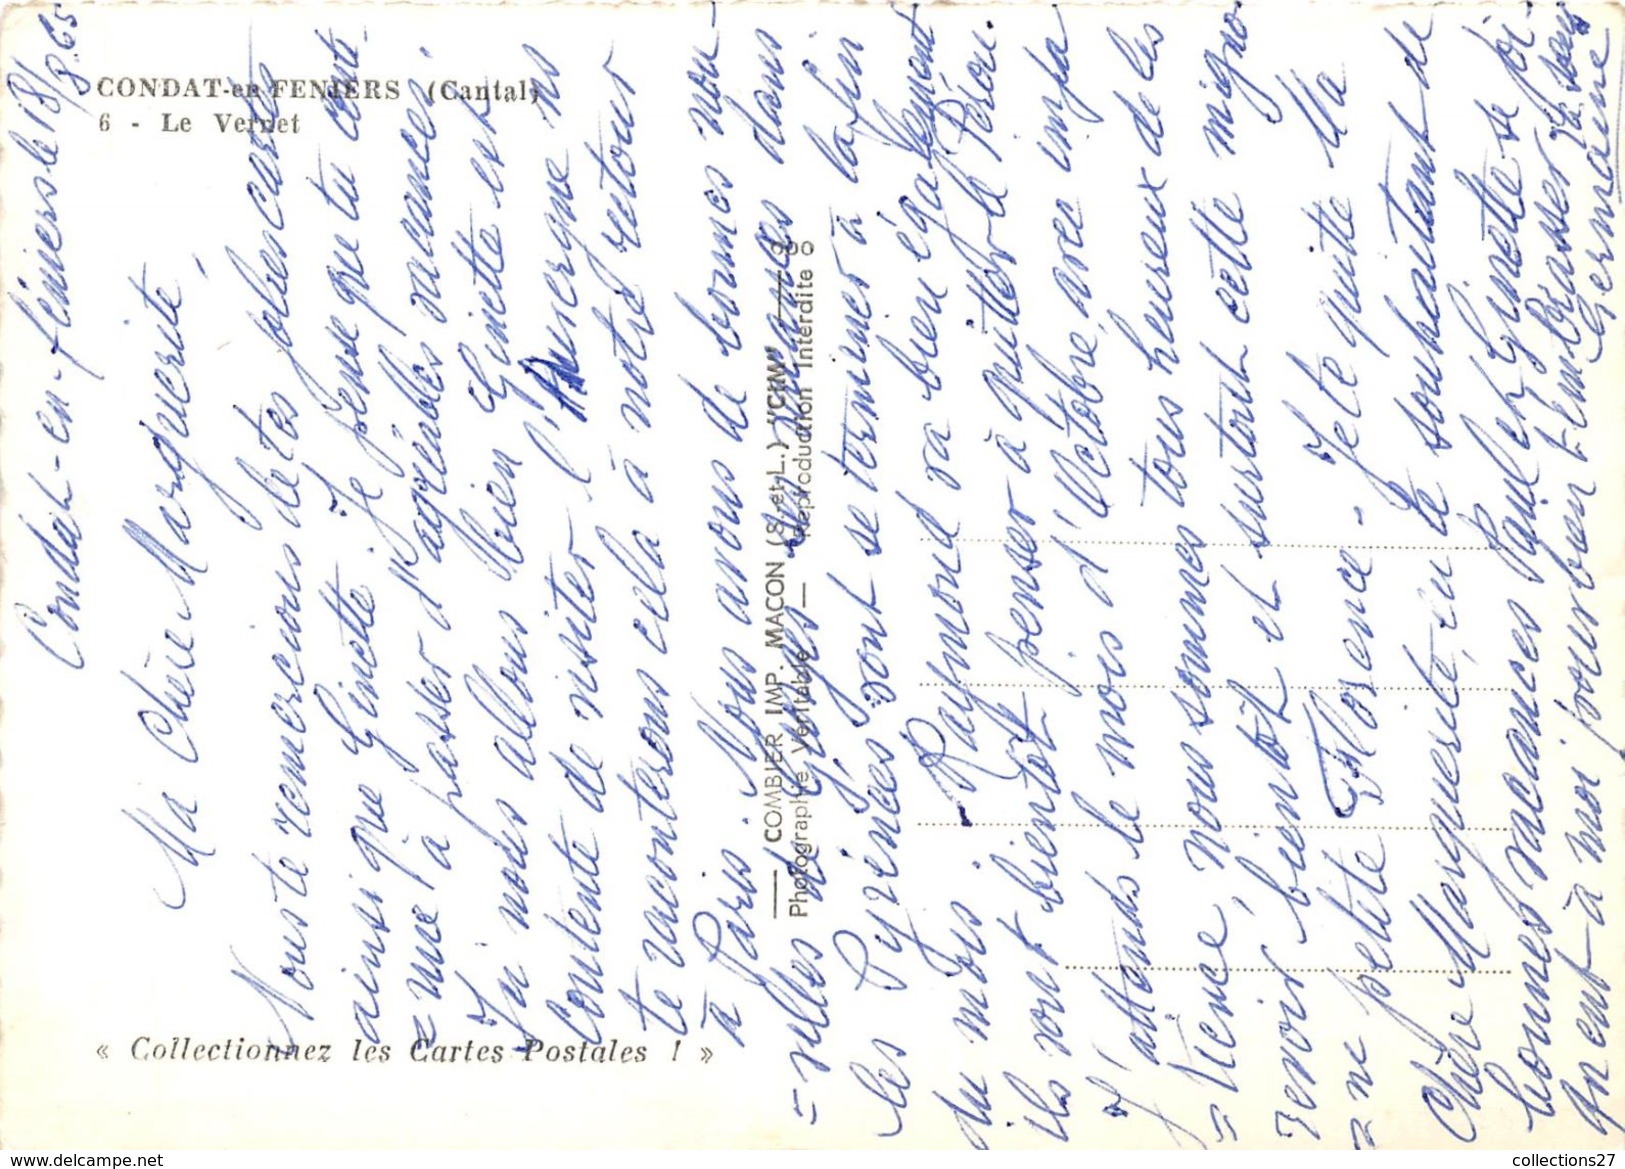 CONDAT-en-FENIERS (Cantal)
6 - Le Vernet
« Collectionnez les Cartes Postales ! »
— COMBIER IMP. MACON (S.-et-L.) "CIM" —
Photographie Véritable — Reproduction Interdite
Condat-en-féniers le 18/8.65
Ma Chère Marguerite,
Nous te remercions de tes jolies cartes
ainsi que Ginette. Je pense que tu conti-
=nue à passer d'agréables vacances.
Ici nous allons bien Ginette est
Contente de visiter l'Auvergne ns
te raconterons cela à notre retour
à Paris. Nous avons de bonnes nou-
=velles de Georges dans
les Pyrénées vont se terminer à la fin
du mois. Raymond va bien également
ils vont bientôt penser à quitter le Pérou.
J'attends le mois d'Octobre, avec impa
=tience, nous sommes tous heureux de les
revoir bientôt et surtout cette migno
=ne petite Florence. Je te quitte Ma
Chère Marguerite, en te souhaitant de
bonnes vacances Paul et Ginette se joi-
gnent à moi pour bien t'embrasser Ta sœur
Germaine
collections27